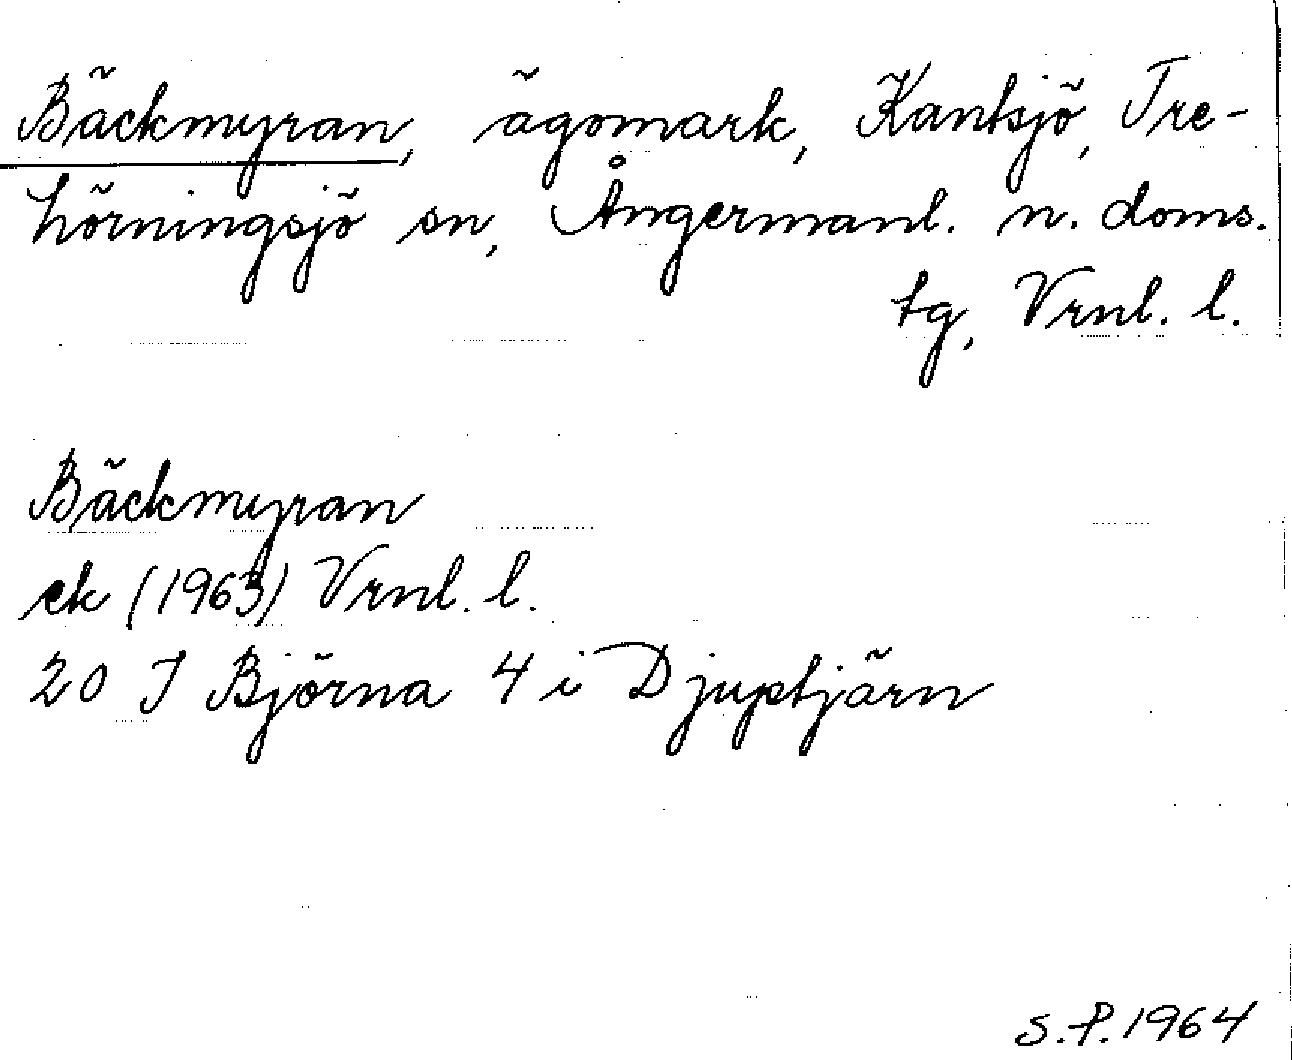 Bäckmyran, ägomark, Kantsjö, Tre-
hörningsjö sn, Ångermanl. n. doms.
tg, Vrnl. l.
Bäckmyran
ek (1963) Vrnl. l.
20 I Björna 4 i Djuptjärn
S.P. 1964